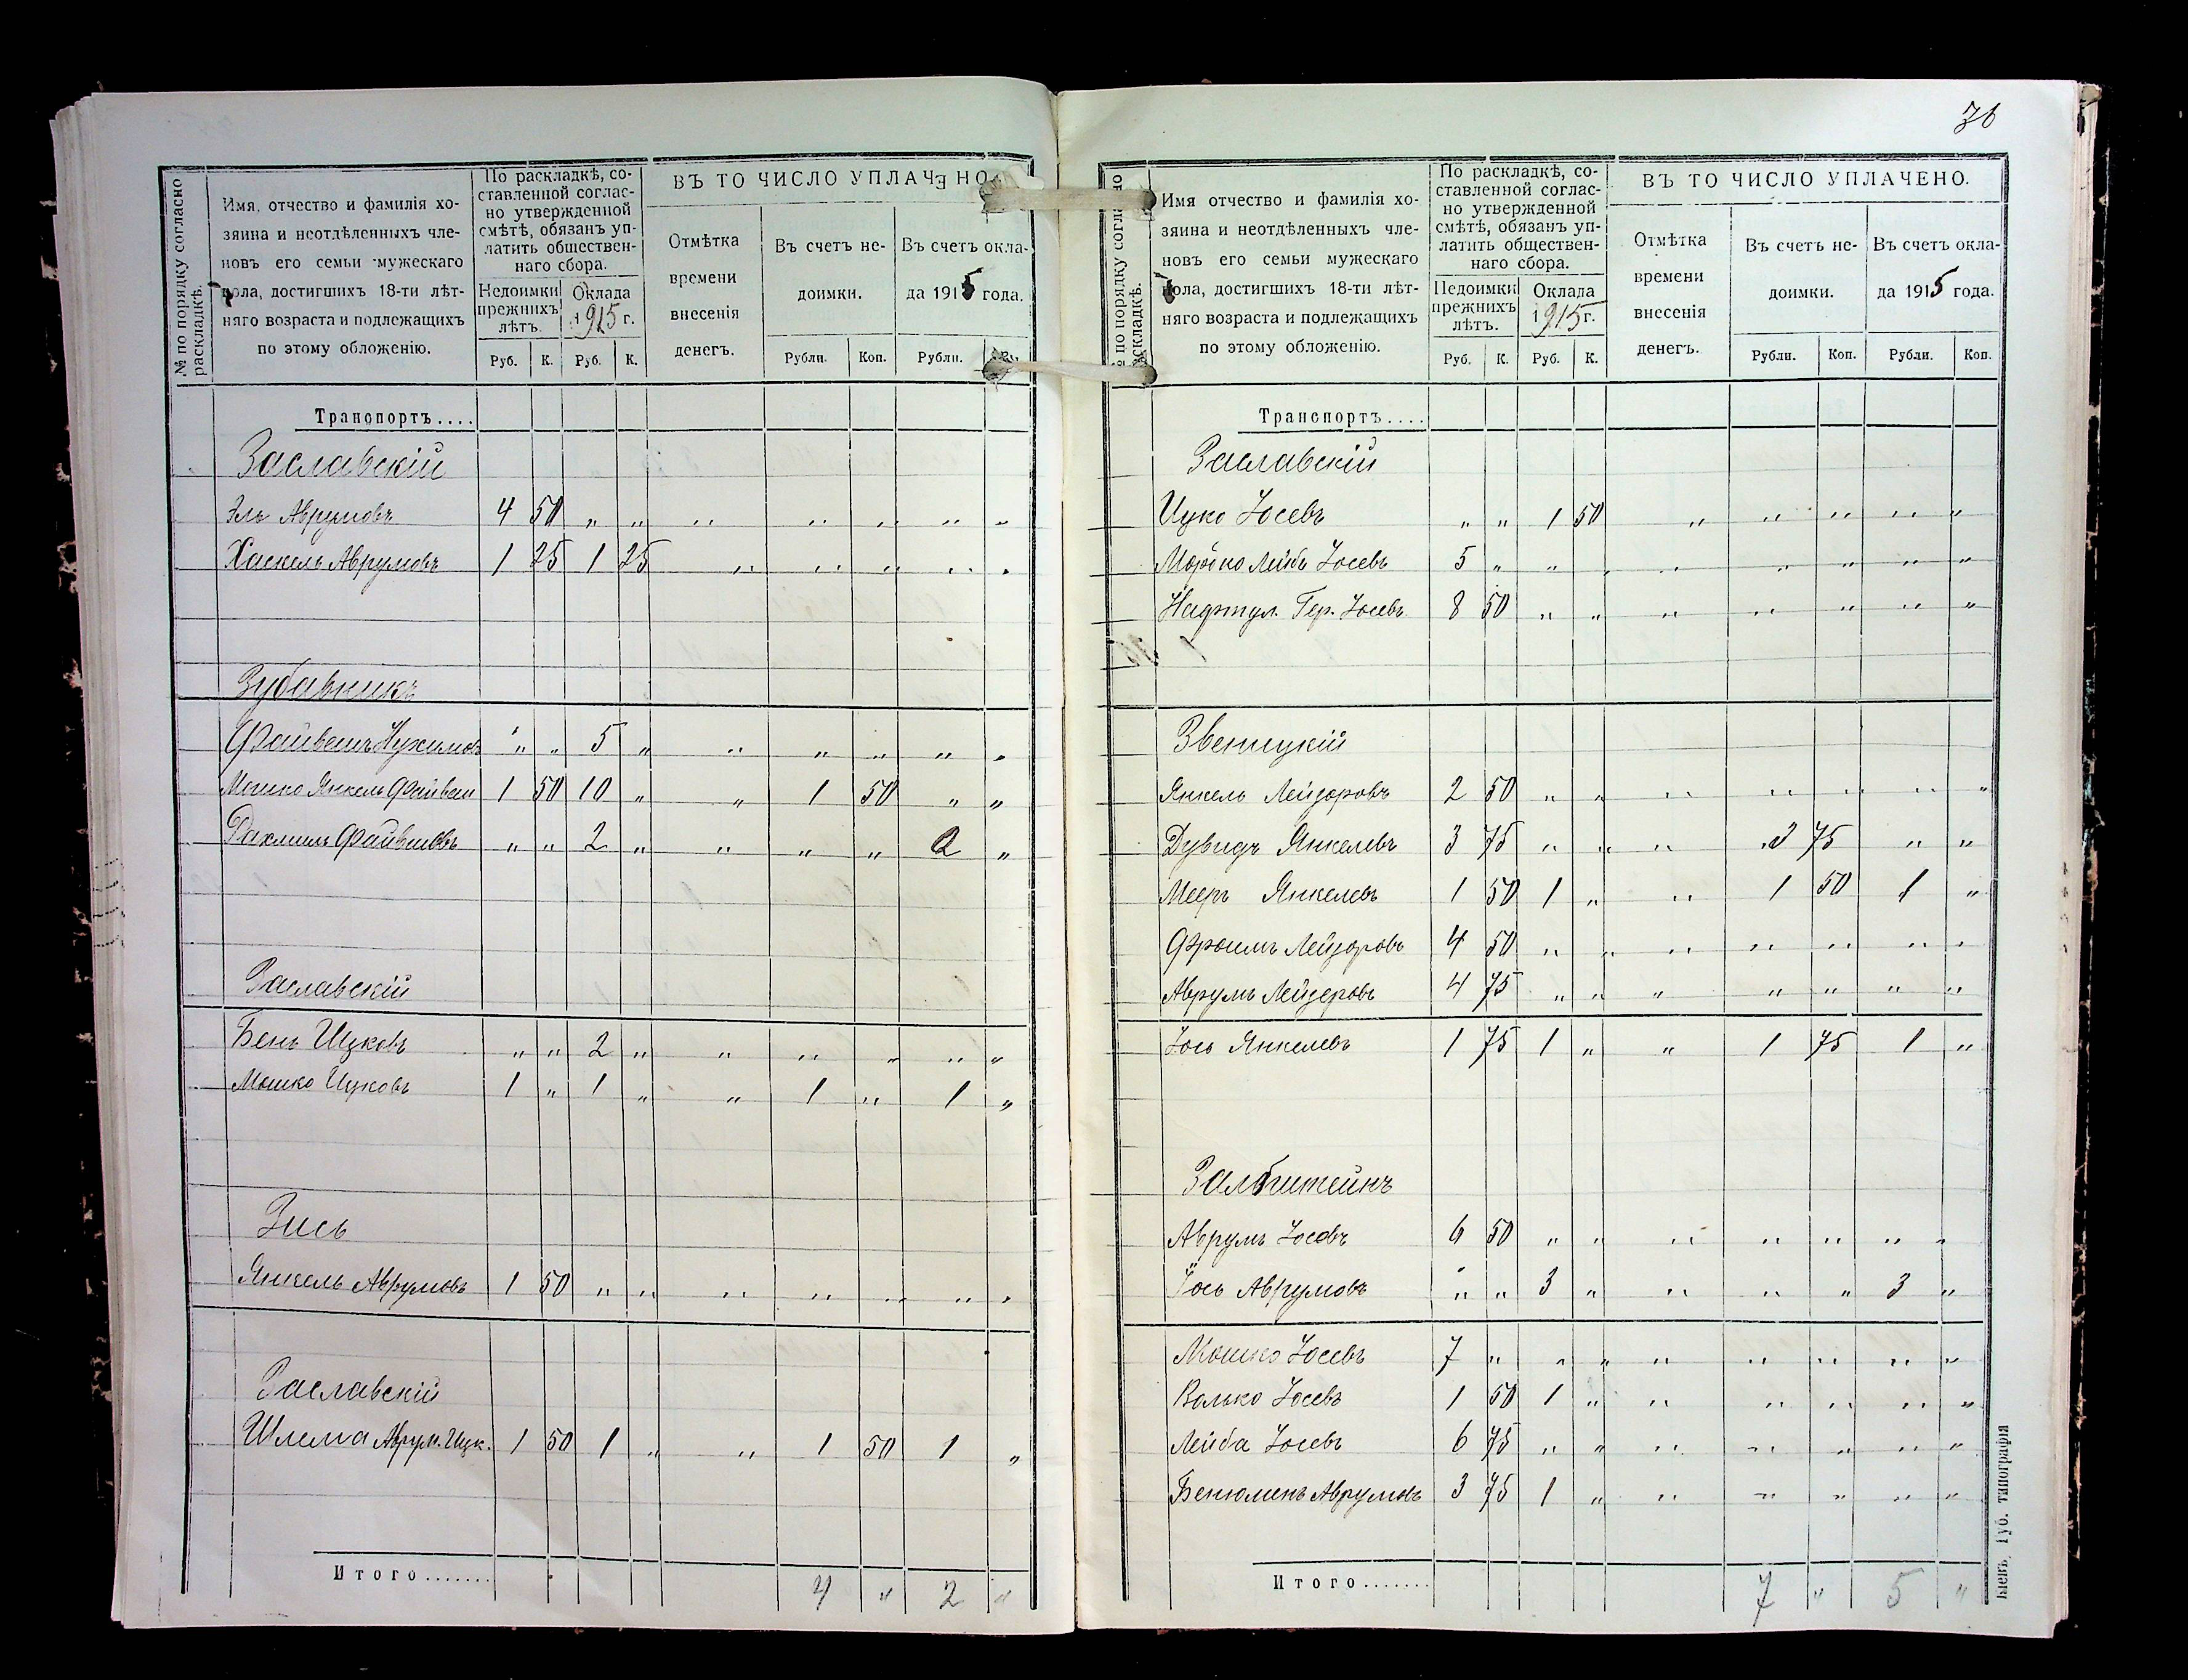 36
№ по порядку согласно раскладкѣ.
Имя, отчество и фамилія хо-
зяина и неотдѣленныхъ чле-
новъ его семьи мужескаго
пола, достигшихъ 18-ти лѣт-
няго возраста и подлежащихъ
по этому обложенію.
По раскладкѣ, со-
ставленной соглас-
но утвержденной
смѣтѣ, обязанъ уп-
латить обществен-
наго сбора.
Недоимки прежнихъ лѣтъ.
Оклада 1915 г.
Руб. К. Руб. К.
ВЪ ТО ЧИСЛО УПЛАЧЕНО
Отмѣтка
времени
внесенія
денегъ.
Въ счетъ не-
доимки.
Въ счетъ окла-
да 1915 года.
Рубли. Коп. Рубли.
Транспортъ....
Заславскій
Эль Аврумовъ 4 50 " " " " " " "
Хаскель Аврумовъ 1 25 1 25 " " " " "
Зубавникъ
Файвешъ Нухимов " " 5 " " " " " "
Мошко Янкель Файвеш 1 50 10 " " 1 50 " "
Рахмиль Файвешевъ " " 2 " " " " 2 "
Заславскій
Бень Ицковъ " " 2 " " " " " "
Мошко Ицковъ 1 " 1 " " 1 " 1 "
Зись
Янкель Аврумовъ 1 50 " " " " " " "
Заславскій
Шлема Аврум. Ицк. 1 50 1 " " 1 50 1 "
Итого....... 4 " 2 "
№ по порядку согласно раскладкѣ.
Имя отчество и фамилія хо-
зяина и неотдѣленныхъ чле-
новъ его семьи мужескаго
пола, достигшихъ 18-ти лѣт-
няго возраста и подлежащихъ
по этому обложенію.
По раскладкѣ, со-
ставленной соглас-
но утвержденной
смѣтѣ, обязанъ уп-
латить обществен-
наго сбора.
Недоимки прежнихъ лѣтъ.
Оклада 1915 г.
Руб. К. Руб. К.
ВЪ ТО ЧИСЛО УПЛАЧЕНО.
Отмѣтка
времени
внесенія
денегъ.
Въ счетъ не-
доимки.
Въ счетъ окла-
да 1915 года.
Рубли. Коп. Рубли. Коп.
Транспортъ....
Заславскій
Ицко Іосевъ " " 1 50 " " " " "
Мордко Лейбъ Іосевъ 5 " " " " " " " "
Нафтул. Гер. Іосевъ 8 50 " " " " " " "
Звеницкій
Янкель Лейзоровъ 2 50 " " " " " " "
Дувидъ Янкелевъ 3 75 " " " 3 75 " "
Мееръ Янкелевъ 1 50 1 " " 1 50 1 "
Фроимъ Лейзоровъ 4 50 " " " " " " "
Аврумъ Лейзеровъ 4 75 " " " " " " "
Іось Янкелевъ 1 75 1 " " 1 75 1 "
Зальбштейнъ
Аврумъ Іосевъ 6 50 " " " " " " "
Іось Аврумовъ " " 3 " " " " 3 "
Мошко Іосевъ 7 " " " " " " " "
Волько Іосевъ 1 50 1 " " " " " "
Лейба Іосевъ 6 75 " " " " " " "
Бенюменъ Аврумовъ 3 75 1 " " " " " "
Итого....... 7 " 5 "
Губ. типографія